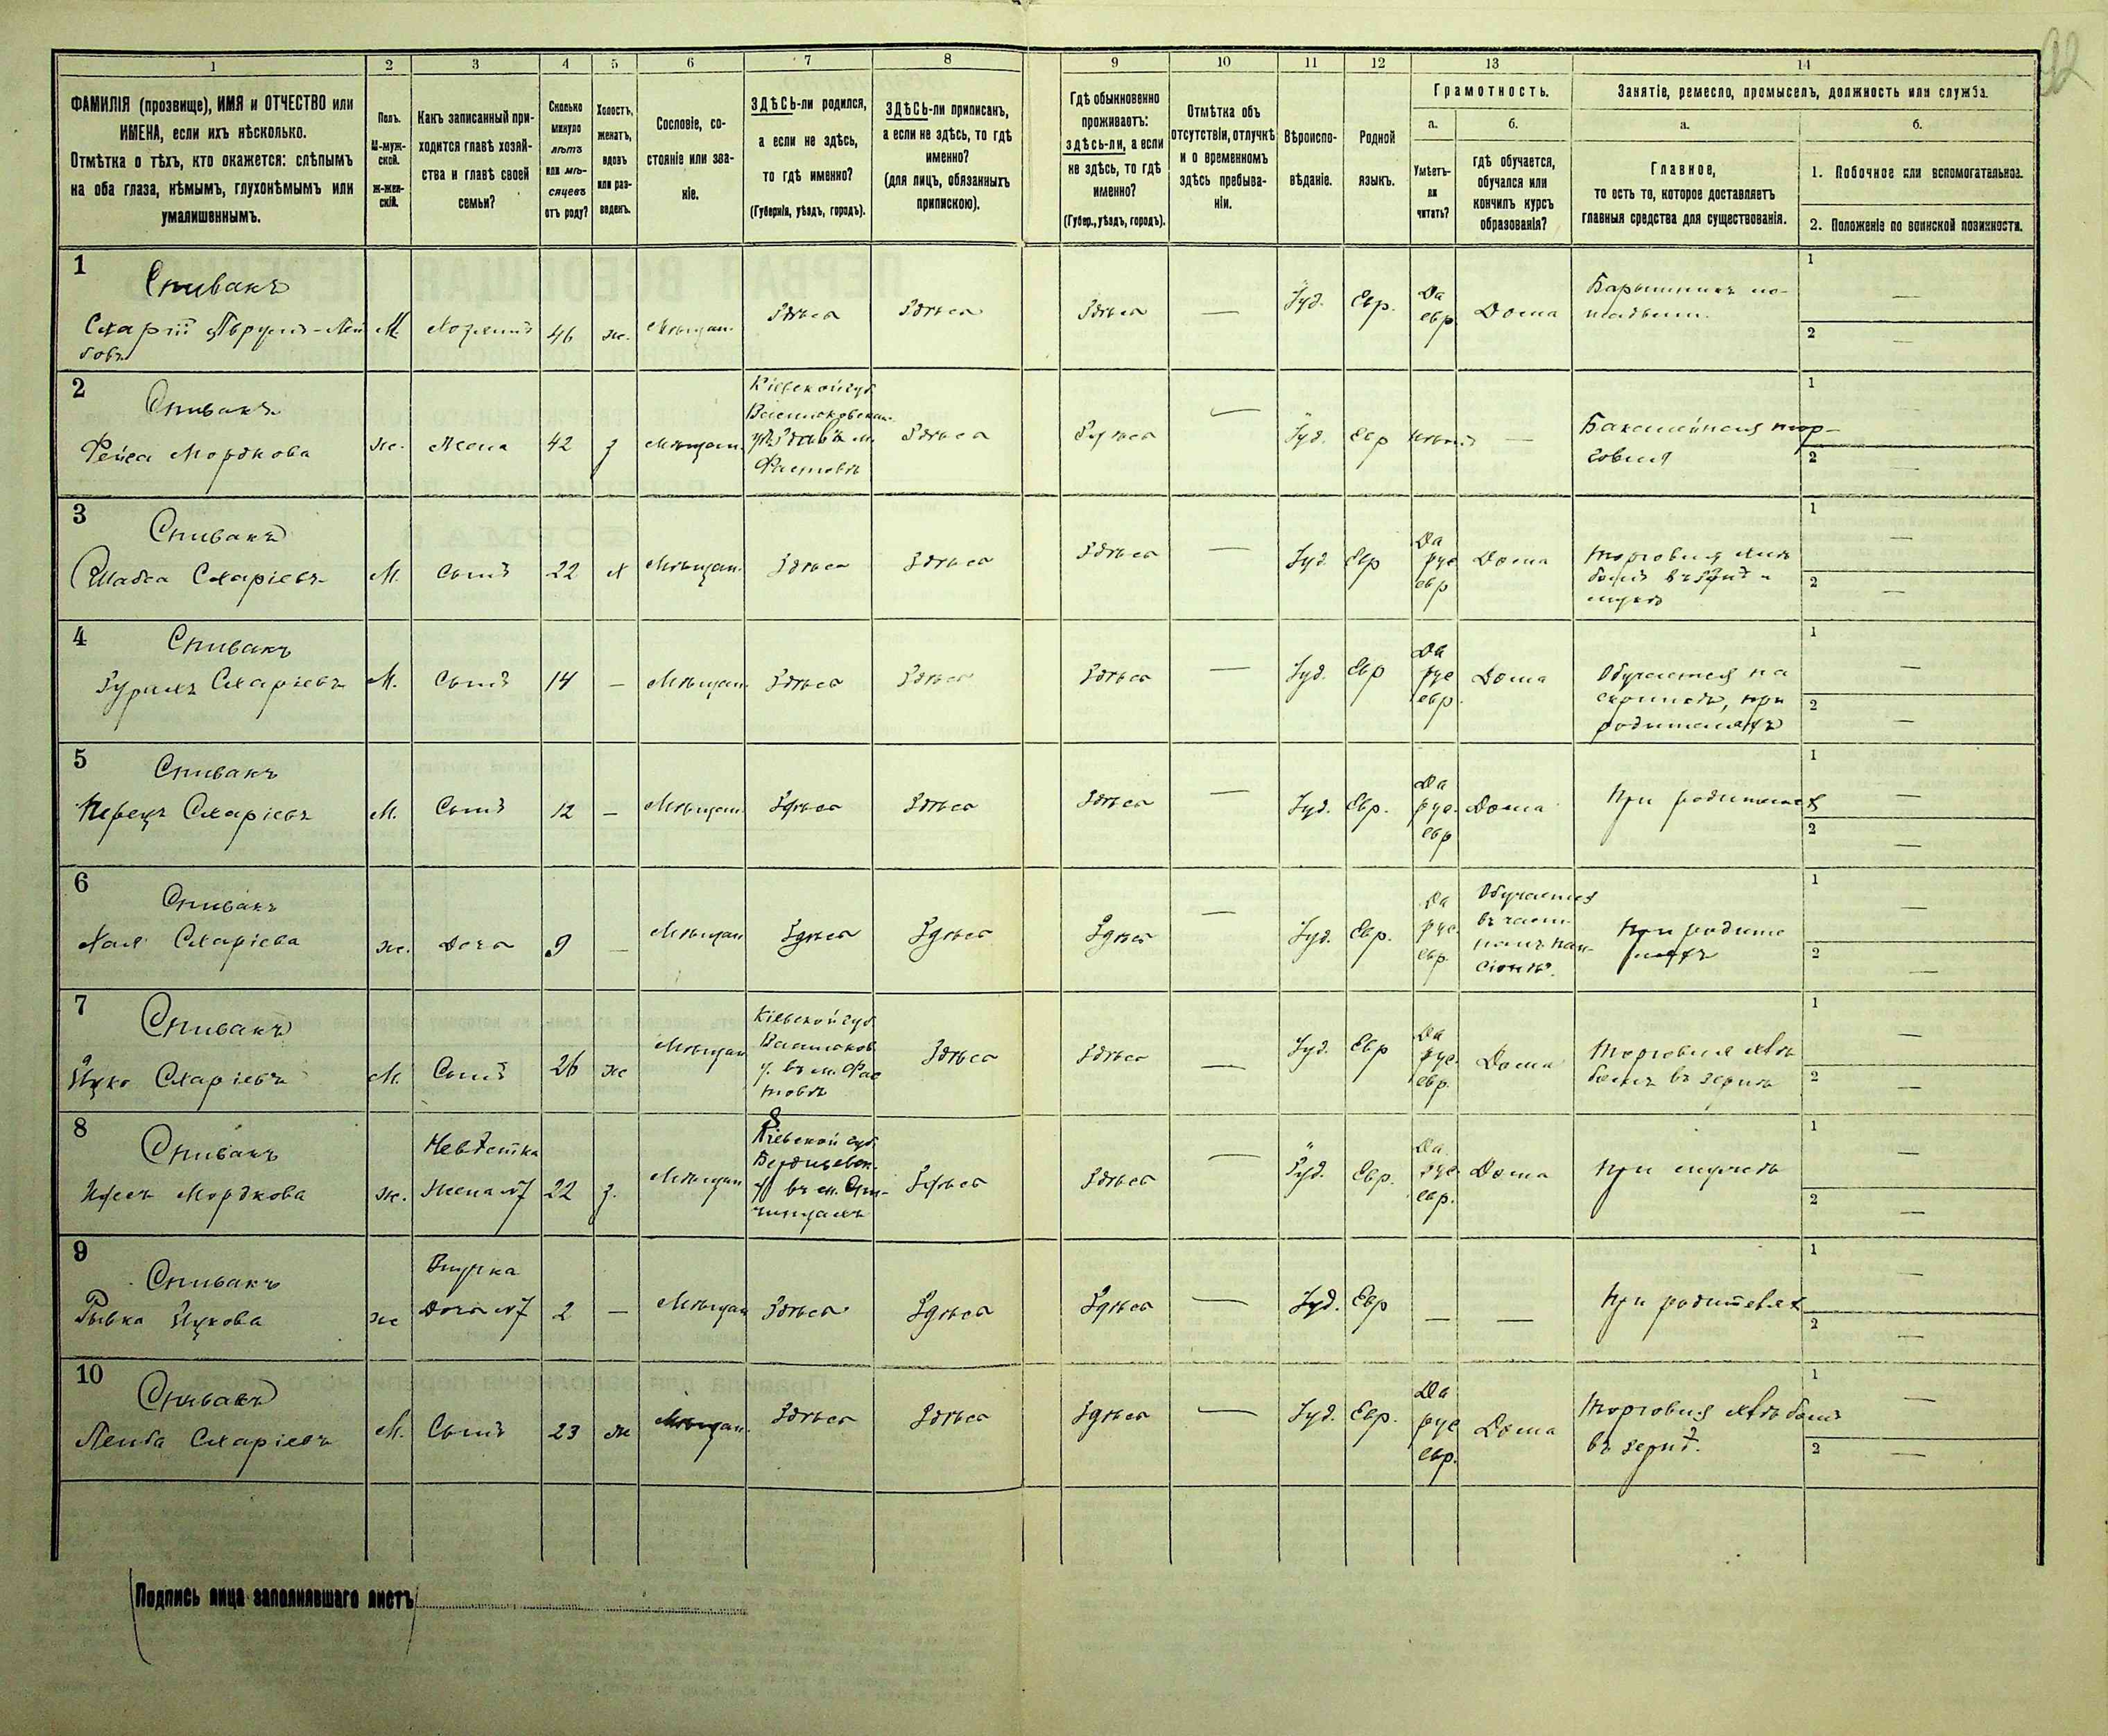 92
1 2 3 4 5 6 7 8 9 10 11 12 13 14
ФАМИЛІЯ (прозвище), ИМЯ и ОТЧЕСТВО или
ИМЕНА, если ихъ нѣсколько.
Отмѣтка о тѣхъ, кто окажется: слѣпымъ
на оба глаза, нѣмымъ, глухонѣмымъ или
умалишеннымъ.
Полъ.
М-муж-
ской.
Ж-жен-
скій.
Какъ записанный при-
ходится главѣ хозяй-
ства и главѣ своей
семьи?
Сколько
минуло
лѣтъ
или мѣ-
сяцевъ
отъ роду?
Холостъ,
женатъ,
вдовъ
или раз-
веденъ.
Сословіе, со-
стояніе или зва-
ніе.
ЗДѢСЬ-ли родился,
а если не здѣсь,
то гдѣ именно?
(Губернія, уѣздъ, городъ).
ЗДѢСЬ-ли приписанъ,
а если не здѣсь, то гдѣ
именно?
(для лицъ, обязанныхъ
припискою).
Гдѣ обыкновенно
проживаетъ:
здѣсь-ли, а если
не здѣсь, то гдѣ
именно?
(Губер., уѣздъ, городъ).
Отмѣтка объ
отсутствіи, отлучкѣ
и о временномъ
здѣсь пребыва-
ніи.
Вѣроиспо-
вѣданіе.
Родной
языкъ.
Грамотность.
а.
Умѣетъ-
ли
читать?
б.
гдѣ обучается,
обучался или
кончилъ курсъ
образованія?
Занятіе, ремесло, промыселъ, должность или служба.
а.
Главное,
то есть то, которое доставляетъ
главныя средства для существованія.
б.
1. Побочное или вспомогательное.
2. Положеніе по воинской повинности.
1
Спивакъ
М
Хозяинъ
46
ж.
Мѣщан.
Здѣсь
Здѣсь
Здѣсь
—
Іуд.
Евр.
Да
евр
Дома
1 —
2 —
2
Спивакъ
Фейга Мордкова
ж.
Жена
42
з
Мѣщан.
Кіевской губ
Здѣсь
Здѣсь
—
Іуд.
Евр
—
Бакалейная тор-
говля
1
2 —
3
Спивакъ
М.
Сынъ
22
х
Мѣщан.
Здѣсь
Здѣсь
Здѣсь
—
Іуд.
Евр
Да
рус
евр
Дома
1 —
2 —
4
Спивакъ
М.
Сынъ
14
—
Мѣщан.
Здѣсь
Здѣсь
Здѣсь
—
Іуд.
Евр
Да
рус
евр.
Дома
Обучается на
скрипкѣ, при
родителяхъ
1 —
2 —
5
Спивакъ
Перецъ Схаріевъ
М.
Сынъ
12
—
Мѣщан.
Здѣсь
Здѣсь
Здѣсь
—
Іуд.
Евр.
Да
рус.
евр
Дома
При родителях
1 —
2 —
6
Спивакъ
Хая Схаріева
ж.
Дочь
9
—
Мѣщан
Здѣсь
Здѣсь
Здѣсь
—
Іуд.
Евр.
Да
рус.
евр.
Обучается
въ част-
номъ пан-
сіонѣ.
При родите
ляхъ
1 —
2 —
7
Спивакъ
Ицко Схаріевъ
М.
Сынъ
26
ж
Мѣщан
Кіевской губ
Васильков
у. въ м. Фас
товѣ
Здѣсь
Здѣсь
—
Іуд.
Евр
Да
рус.
евр.
Дома
Торговля хлѣ
бомъ въ зернѣ
1 —
2 —
8
Спивакъ
Мордкова
ж.
Невѣстка
Жена №7
22
з.
Мѣщан
Кіевской губ
Бердичевск.
Здѣсь
Здѣсь
—
Іуд.
Евр.
Да.
рус.
евр.
Дома
При мужѣ
1 —
2 —
9
Спивакъ
Рывка Ицкова
ж
Внучка
Дочь №7
2
—
Мѣщан
Здѣсь
Здѣсь
Здѣсь
—
Іуд.
Евр
—
—
При родителях
1 —
2 —
10
Спивакъ
Лейба Схаріевъ
М.
Сынъ
23
ж
Мѣщан.
Здѣсь
Здѣсь
Здѣсь
—
Іуд.
Евр.
Да
рус
евр.
Дома
Торговля хлѣбомъ
въ зернѣ.
1 —
2 —
Подпись лица заполнявшаго листъ